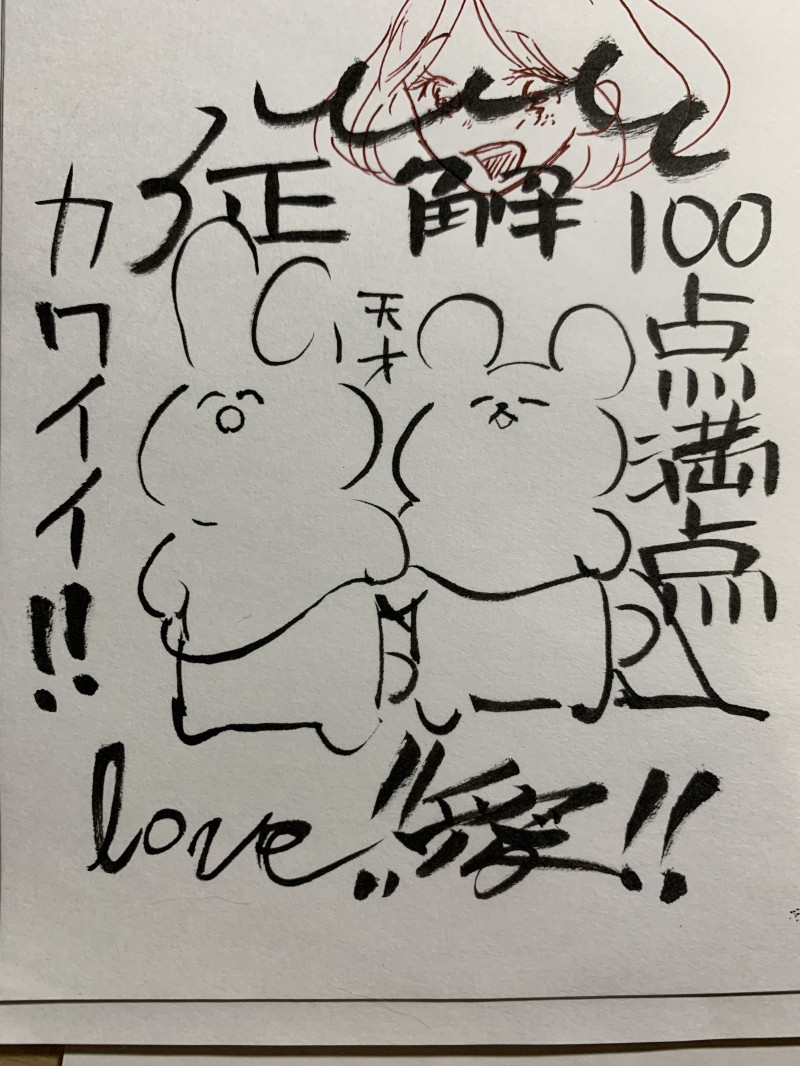 正解
100点満点
天才
カワイイ!!
love!!
愛!!